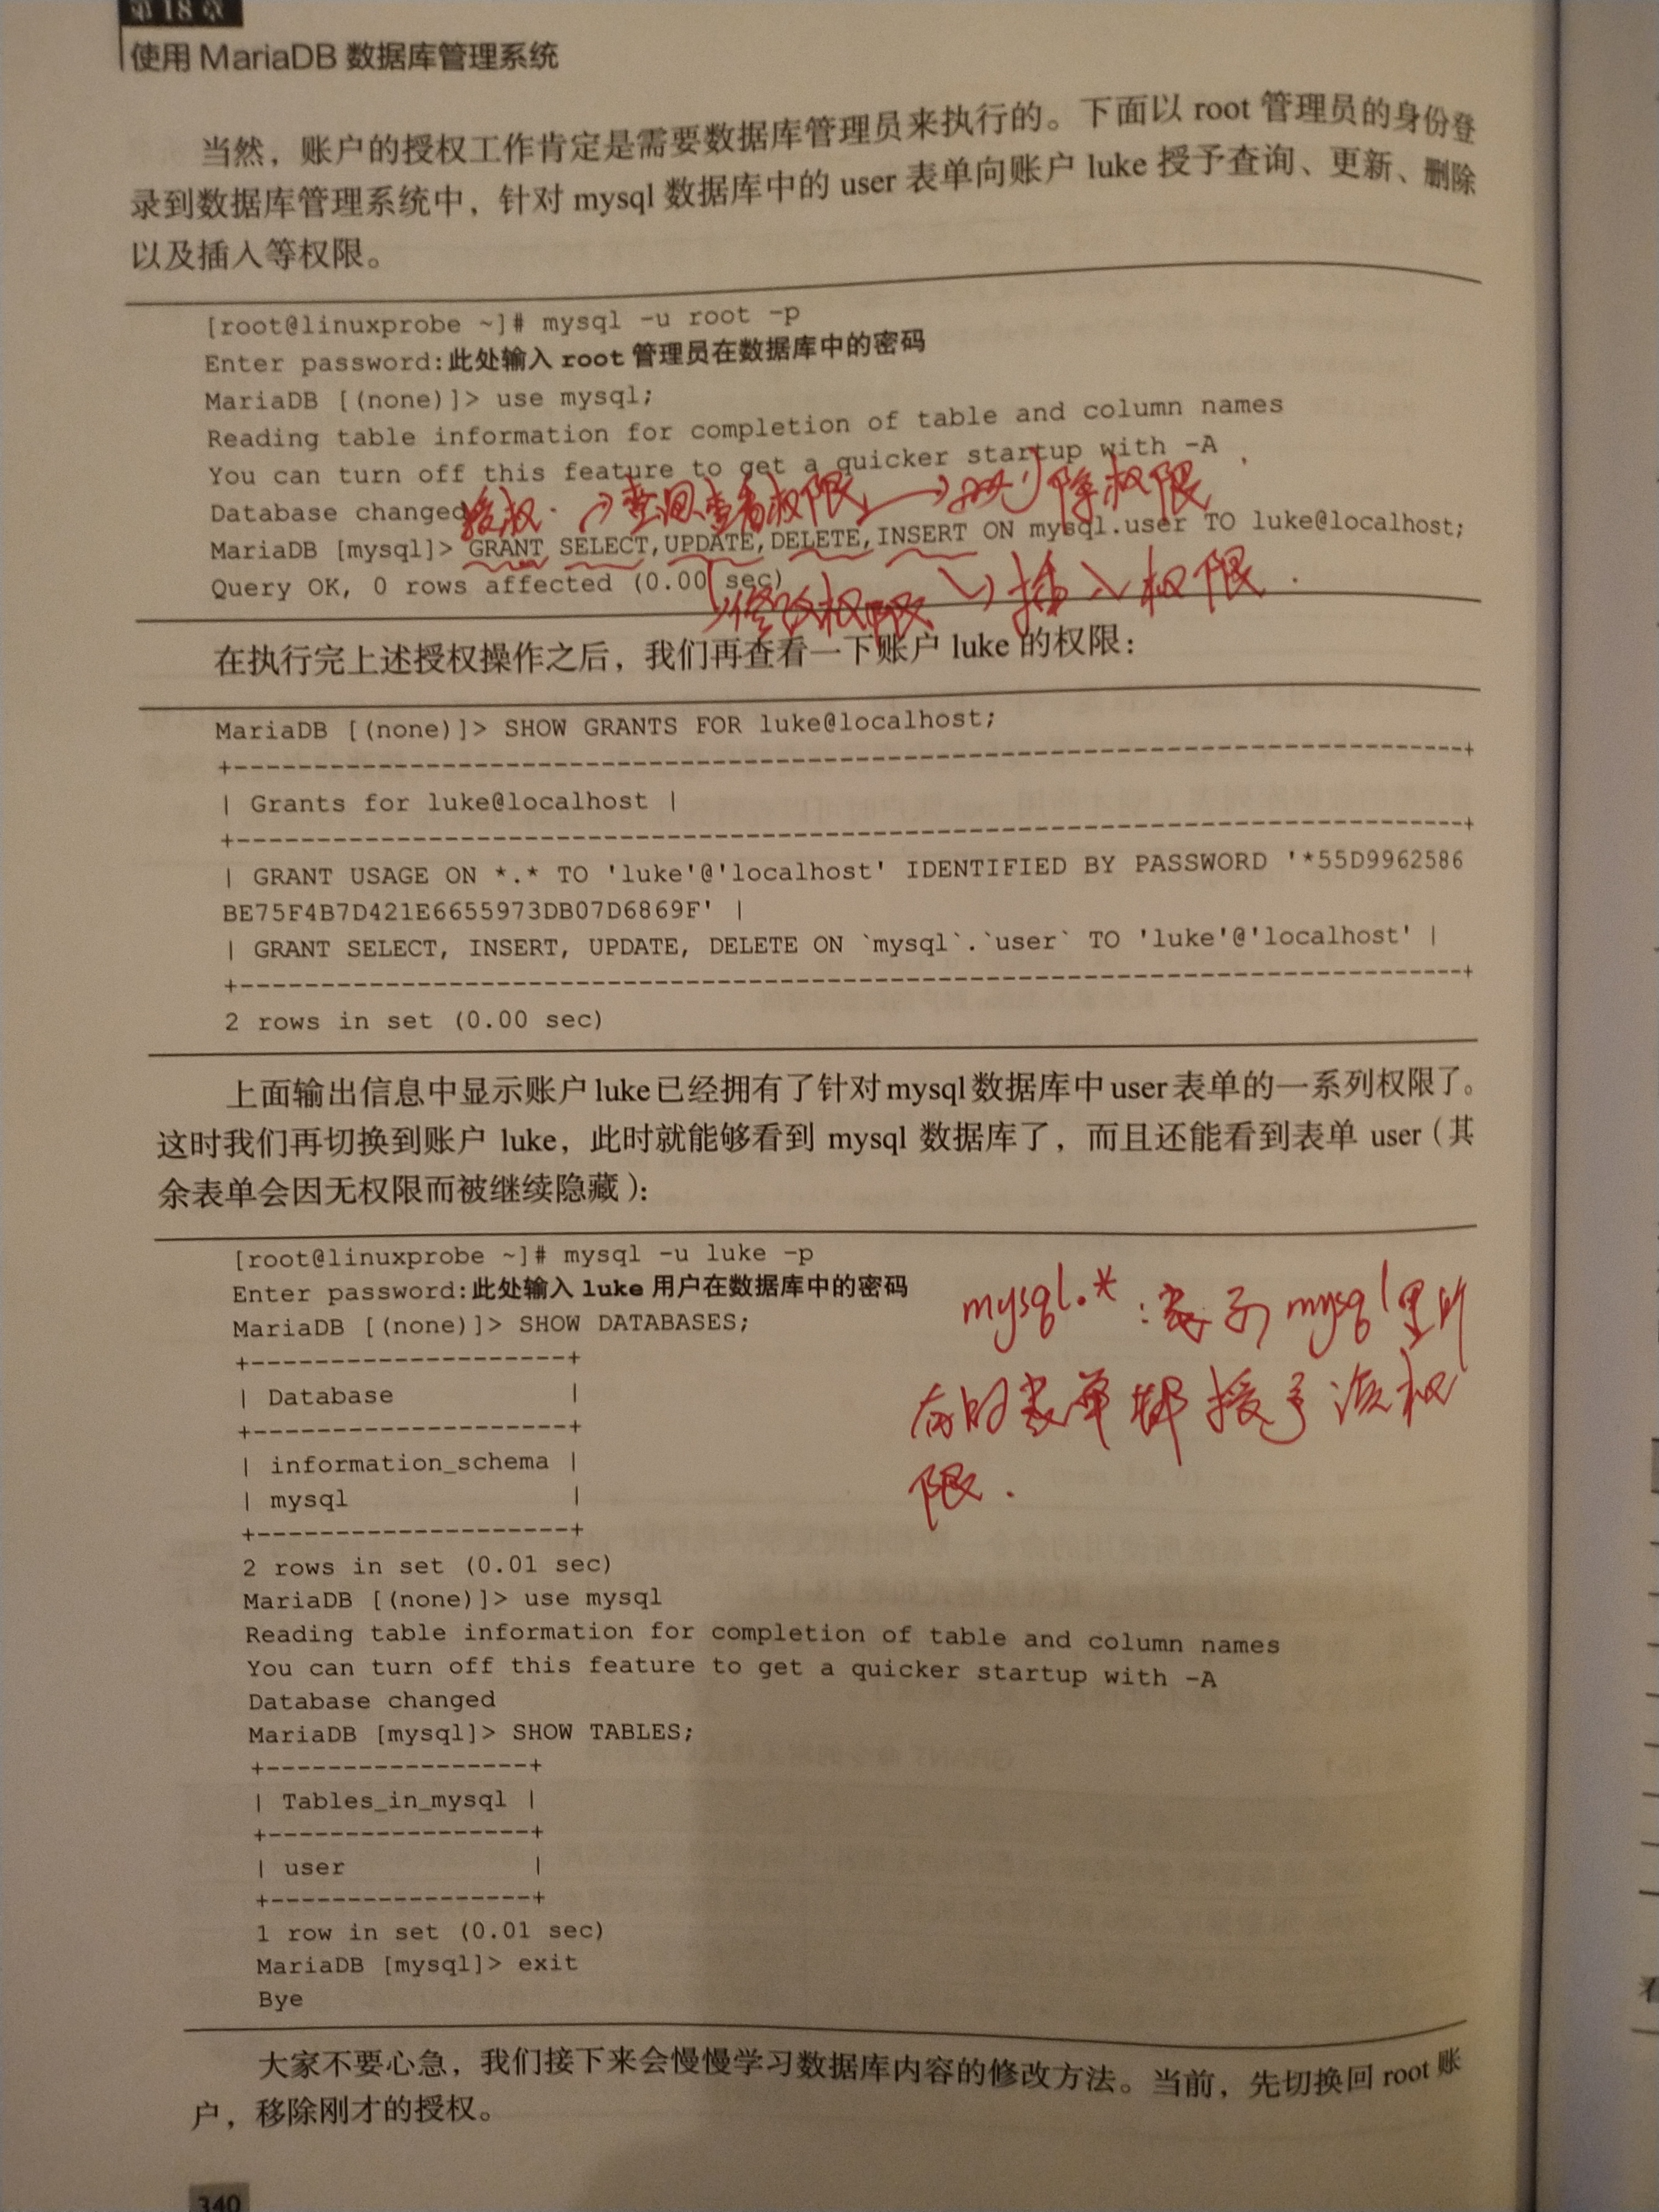 第18章
使用 MariaDB 数据库管理系统
当然，账户的授权工作肯定是需要数据库管理员来执行的。下面以 root 管理员的身份登
录到数据库管理系统中，针对 mysql 数据库中的 user 表单向账户 luke 授予查询、更新、删除
以及插入等权限。
[root@linuxprobe ~]# mysql -u root -p
Enter password:此处输入 root 管理员在数据库中的密码
MariaDB [(none)]> use mysql;
Reading table information for completion of table and column names
You can turn off this feature to get a quicker startup with -A
授权. → 查询.查看权限 → 删除权限.
Database changed
MariaDB [mysql]> GRANT SELECT,UPDATE,DELETE,INSERT ON mysql.user TO luke@localhost;
Query OK, 0 rows affected (0.00 sec)
→修改权限 → 插入权限.
在执行完上述授权操作之后，我们再查看一下账户 luke 的权限：
MariaDB [(none)]> SHOW GRANTS FOR luke@localhost;
+------------------------------------------------------------------------------+
| Grants for luke@localhost |
+------------------------------------------------------------------------------+
| GRANT USAGE ON *.* TO 'luke'@'localhost' IDENTIFIED BY PASSWORD '*55D9962586
BE75F4B7D421E6655973DB07D6869F' |
| GRANT SELECT, INSERT, UPDATE, DELETE ON `mysql`.`user` TO 'luke'@'localhost' |
+------------------------------------------------------------------------------+
2 rows in set (0.00 sec)
上面输出信息中显示账户 luke 已经拥有了针对 mysql 数据库中 user 表单的一系列权限了。
这时我们再切换到账户 luke，此时就能够看到 mysql 数据库了，而且还能看到表单 user（其
余表单会因无权限而被继续隐藏）：
[root@linuxprobe ~]# mysql -u luke -p
Enter password:此处输入 luke 用户在数据库中的密码
MariaDB [(none)]> SHOW DATABASES;
+--------------------+
| Database           |
+--------------------+
| information_schema |
| mysql              |
+--------------------+
mysql.* :表示mysql里所
有的表单都授予该权
限.
2 rows in set (0.01 sec)
MariaDB [(none)]> use mysql
Reading table information for completion of table and column names
You can turn off this feature to get a quicker startup with -A
Database changed
MariaDB [mysql]> SHOW TABLES;
+-----------------+
| Tables_in_mysql |
+-----------------+
| user            |
+-----------------+
1 row in set (0.01 sec)
MariaDB [mysql]> exit
Bye
大家不要心急，我们接下来会慢慢学习数据库内容的修改方法。当前，先切换回 root 账
户，移除刚才的授权。
340